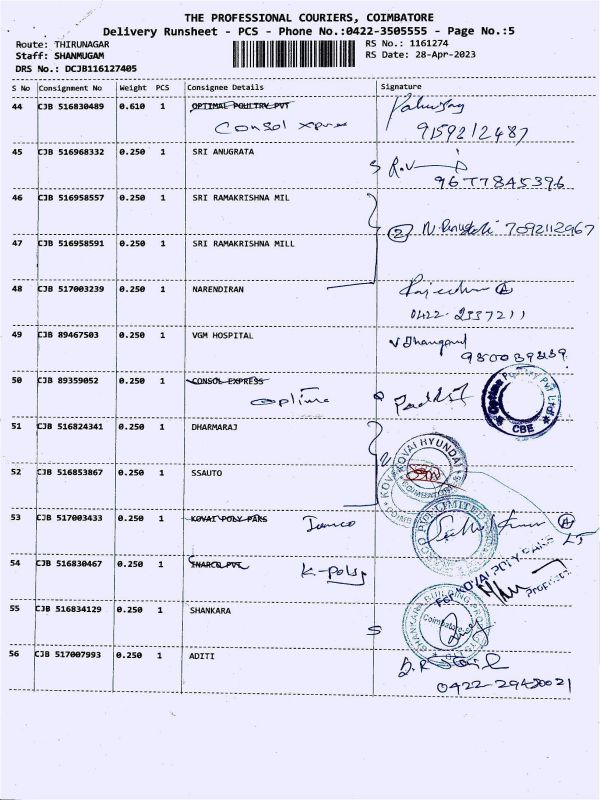 THE PROFESSIONAL COURIERS, COIMBATORE
Delivery Runsheet - PCS - Phone No.:0422-3505555 - Page No.:5
Route: THIRUNAGAR
RS No.: 1161274
Staff: SHANMUGAM
RS Date: 28-Apr-2023
DRS No.: DCJB116127405
S No Consignment No Weight PCS Consignee Details Signature
44 CJB 516830489 0.610 1 OPTIMAL POULTRY PVT
Consol xpress
9159212487
45 CJB 516968332 0.250 1 SRI ANUGRATA
R.V
9677845396
46 CJB 516958557 0.250 1 SRI RAMAKRISHNA MIL
2 7092112967
47 CJB 516958591 0.250 1 SRI RAMAKRISHNA MILL
48 CJB 517003239 0.250 1 NARENDIRAN
0422-2337211
49 CJB 89467503 0.250 1 VGM HOSPITAL
50 CJB 89359052 0.250 1 CONSOL EXPRESS
optima
CBE
51 CJB 516824341 0.250 1 DHARMARAJ
KOVAI HYUNDAI
COIMBATORE
52 CJB 516853867 0.250 1 SSAUTO
53 CJB 517003433 0.250 1 KOVAI POLY PAKS
PVT LIMITED
54 CJB 516830467 0.250 1 INARCO PVT
K-poly
For KOVAI POLY PAKS
Proprietor
55 CJB 516834129 0.250 1 SHANKARA
SHANKARA BUILDING PRODUCTS
Coimbatore
56 CJB 517007993 0.250 1 ADITI